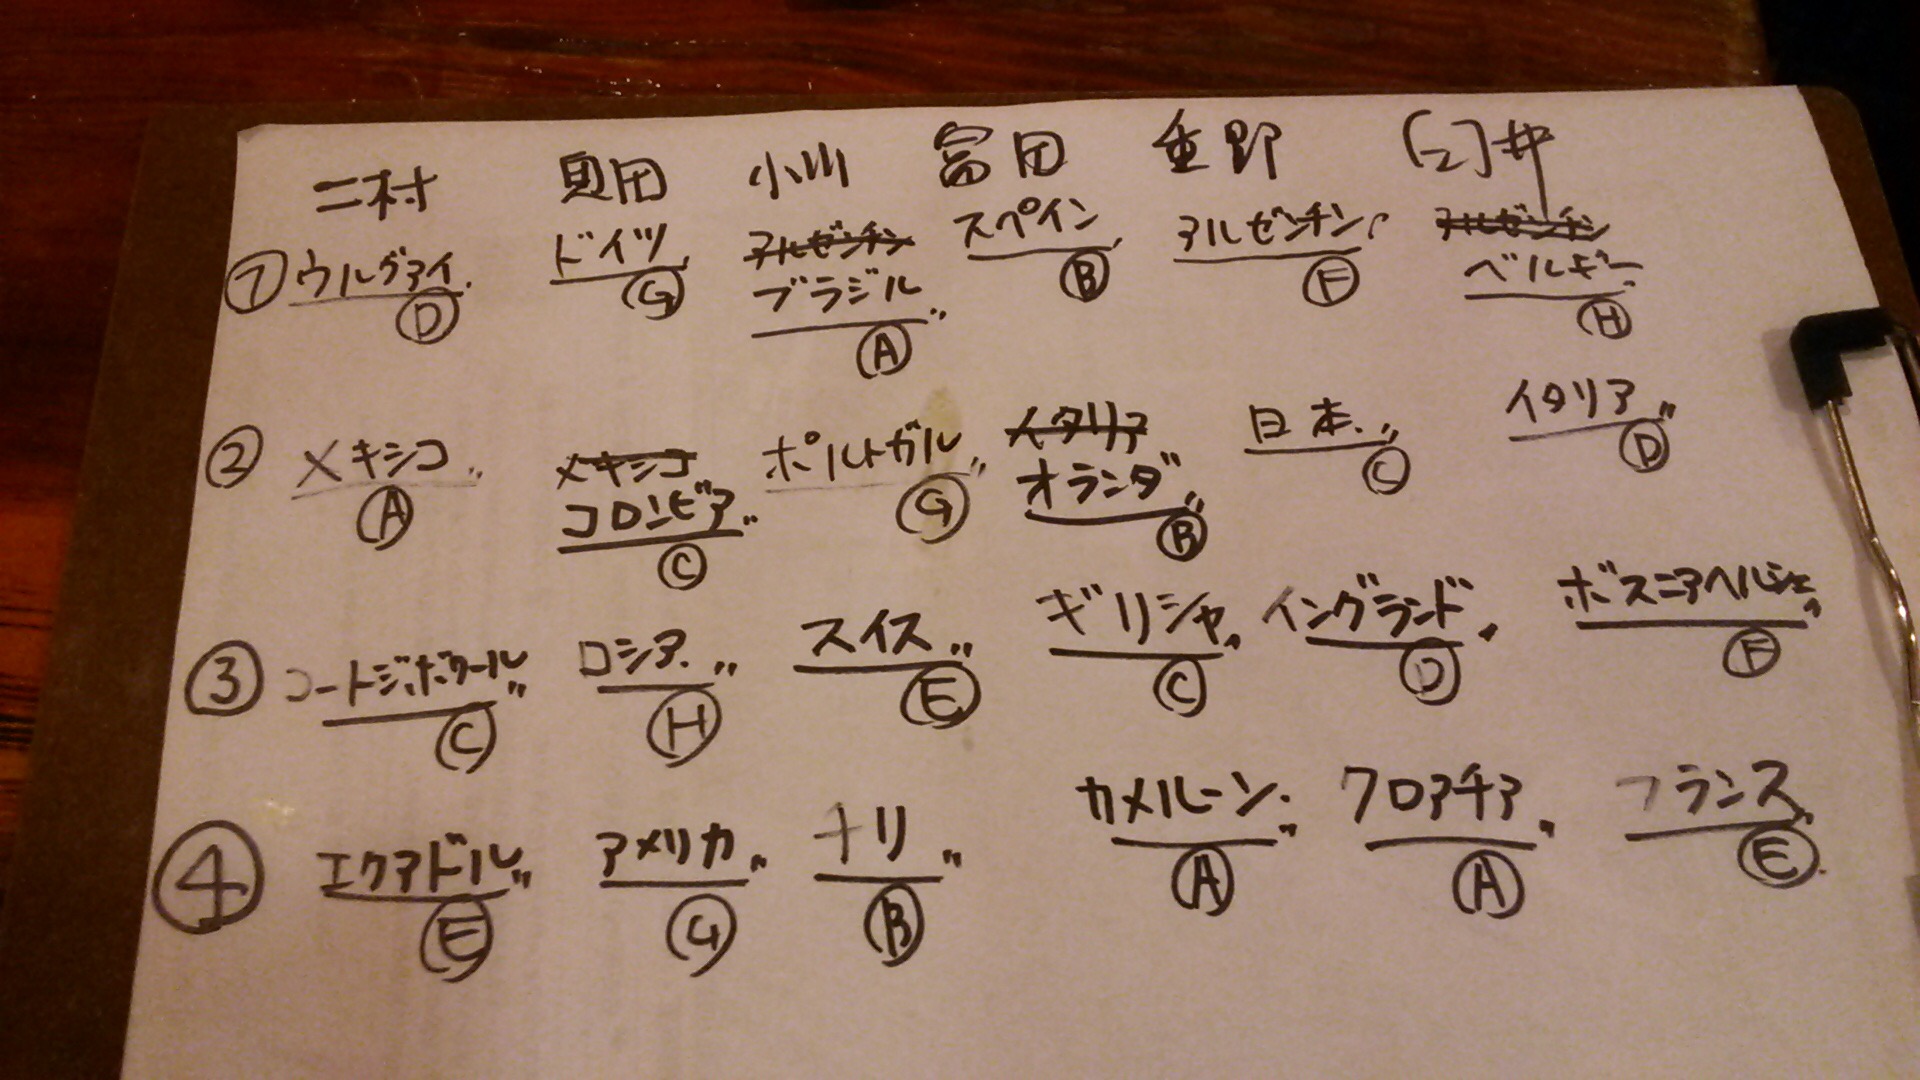 二村 貝田 小川 富田 重野 井
① ウルグアイ ドイツ アルゼンチン スペイン アルゼンチン アルゼンチン
ブラジル ベルギー
D G A B F H
② メキシコ メキシコ ポルトガル イタリア 日本 イタリア
コロンビア オランダ
A C G B C D
③ コートジボワール ロシア スイス ギリシャ イングランド ボスニアヘルツェ
C H E C D F
④ エクアドル アメリカ チリ カメルーン クロアチア フランス
E G B A A E